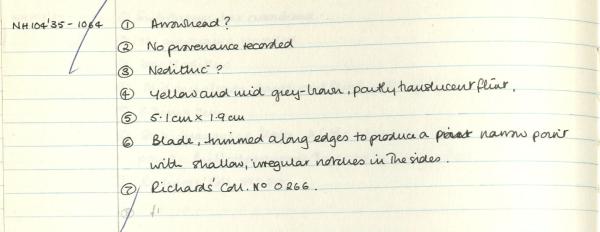 NH104'35-1064 ① Arrowhead?
② No provenance recorded
③ Neolithic?
④ Yellow and mid grey-brown, partly translucent flint.
⑤ 5.1cm × 1.9cm
⑥ Blade, trimmed along edges to produce a narrow point
with shallow, irregular notches in the sides.
⑦ Richards' Coll. No 0266.